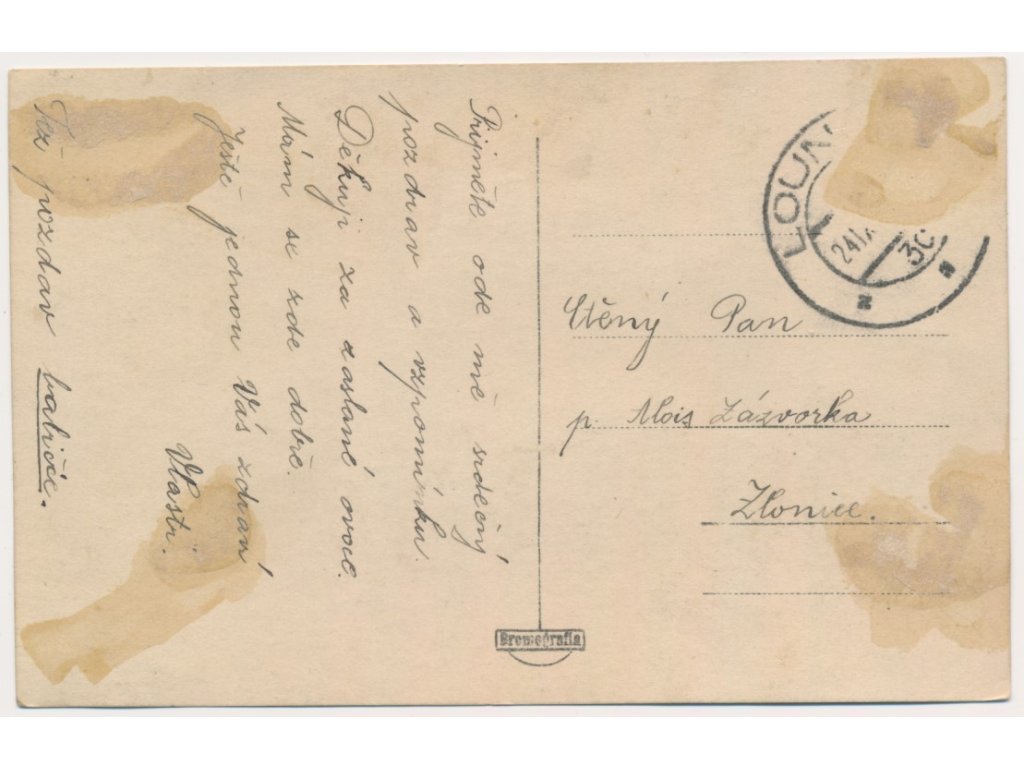 Přijměte ode mě srdečný
pozdrav a vzpomínku.
Děkuji za zaslané ovoce.
Mám se zde dobře.
Ještě jednou Vás zdraví
Vlastí.
Též pozdav babičce.
LOUN
24 I
30
Ctěný Pan
p. Alois Zázvorka
Zlonice.
Bromografia